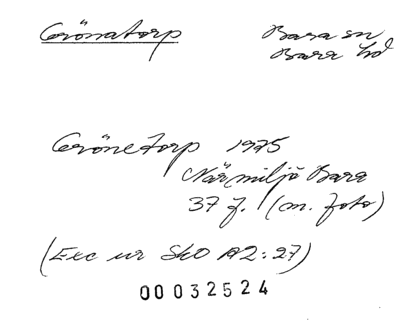 Grönatorp
Bara sn
Bara hd
Grönetorp 1975
Närmiljö Bara
37 f. (m. foto)
(Exc ur SkO A2:27)
00032524